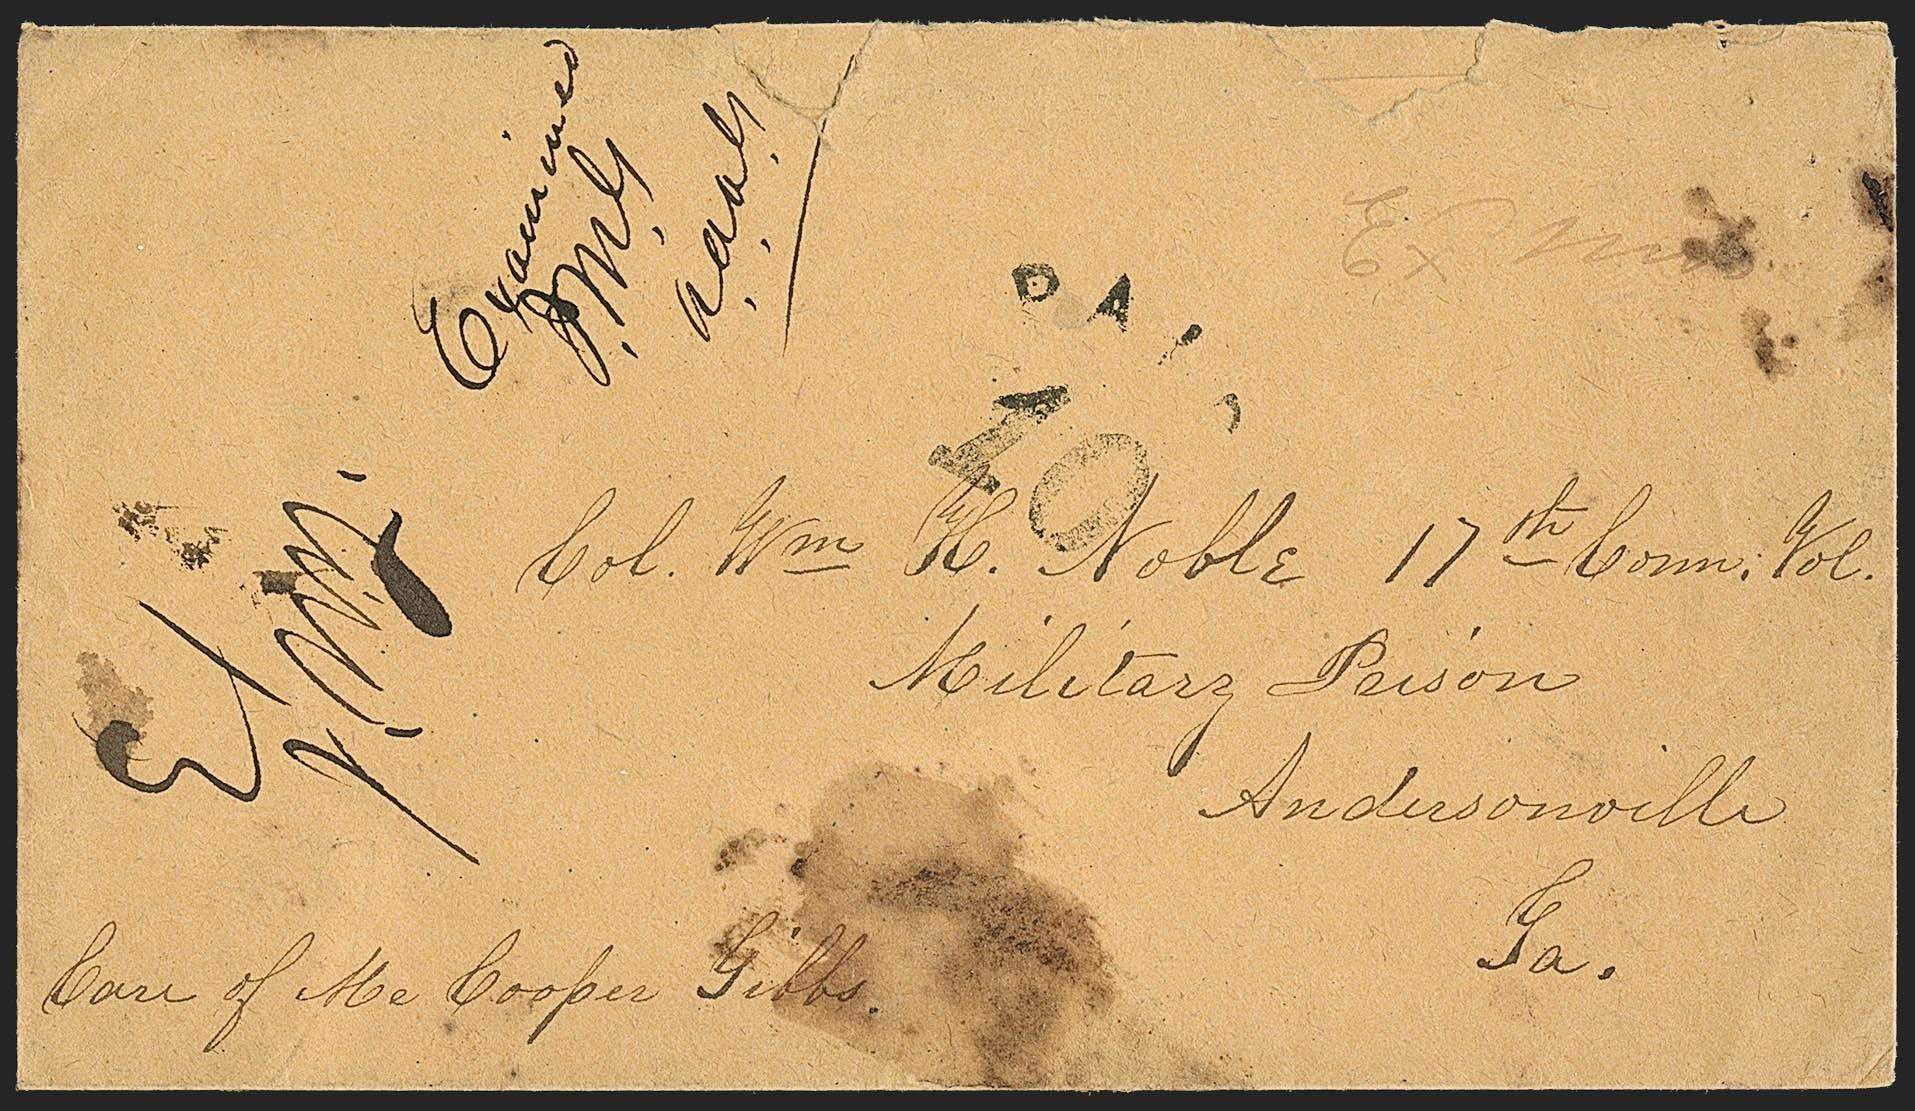 Examined
J.M.G.
a.a.a.G.
Ex
PAI
10
Ex
Col. Wm H. Noble 17th Conn. Vol.
Military Prison
Andersonville
Ga.
Care of Mc Cooper Gibbs.